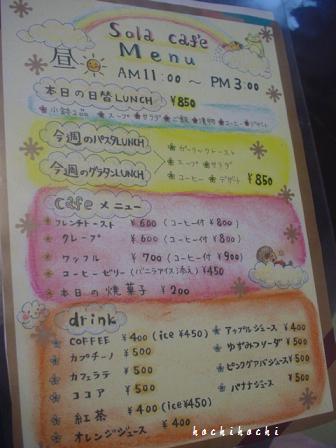 Sola cafe
Menu
昼 AM11:00 ～ PM3:00
本日の日替LUNCH ¥850
小鉢2品 スープ サラダ ご飯 漬物 コーヒー デザート
今週のパスタLUNCH
今週のグラタンLUNCH
ガーリックトースト
スープ サラダ
コーヒー デザート ¥850
cafe メニュー
フレンチトースト ¥600 (コーヒー付 ¥800)
クレープ ¥600 (コーヒー付 ¥800)
ワッフル ¥700 (コーヒー付 ¥900)
コーヒーゼリー (バニラアイス添え) ¥450
本日の焼菓子 ¥200
drink
COFFEE ¥400 (ice ¥450)
カプチーノ ¥500
カフェラテ ¥500
ココア ¥500
紅茶 ¥400 (ice ¥450)
オレンジジュース ¥400
アップルジュース ¥400
ゆずみつソーダ ¥500
ピンクグアバジュース ¥500
バナナジュース ¥500
kochikochi